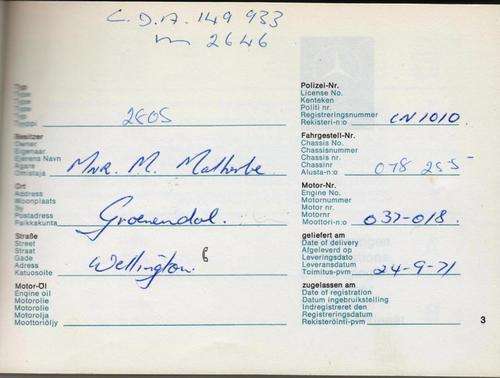 C.D.A. 149 933
m 2646
Typ
Type
Type
Type
Type
Tyyppi
280S
Besitzer
Owner
Eigenaar
Ejerens Navn
Ägare
Omistaja
Mnr. M. Malherbe
Ort
Address
Woonplaats
By
Postadress
Paikkakunta
Groenendal.
Straße
Street
Straat
Gade
Adress
Katuosoite
Wellington.
Motor-Öl
Engine oil
Motorolie
Motorolie
Motorolja
Moottoriöljy
Polizei-Nr.
License No.
Kenteken
Politi nr.
Registreringsnummer
Rekisteri-n:o
CN 1010.
Fahrgestell-Nr.
Chassis No.
Chassisnummer
Chassis nr.
Chassinr
Alusta-n:o
078 255
Motor-Nr.
Engine No.
Motornummer
Motor nr.
Motornr
Moottori-n:o
037-018.
geliefert am
Date of delivery
Afgeleverd op
Leveringsdato
Leveransdatum
Toimitus-pvm
24-9-71
zugelassen am
Date of registration
Datum ingebruikstelling
Indregistreret den
Registreringsdatum
Rekisteröinti-pvm
3